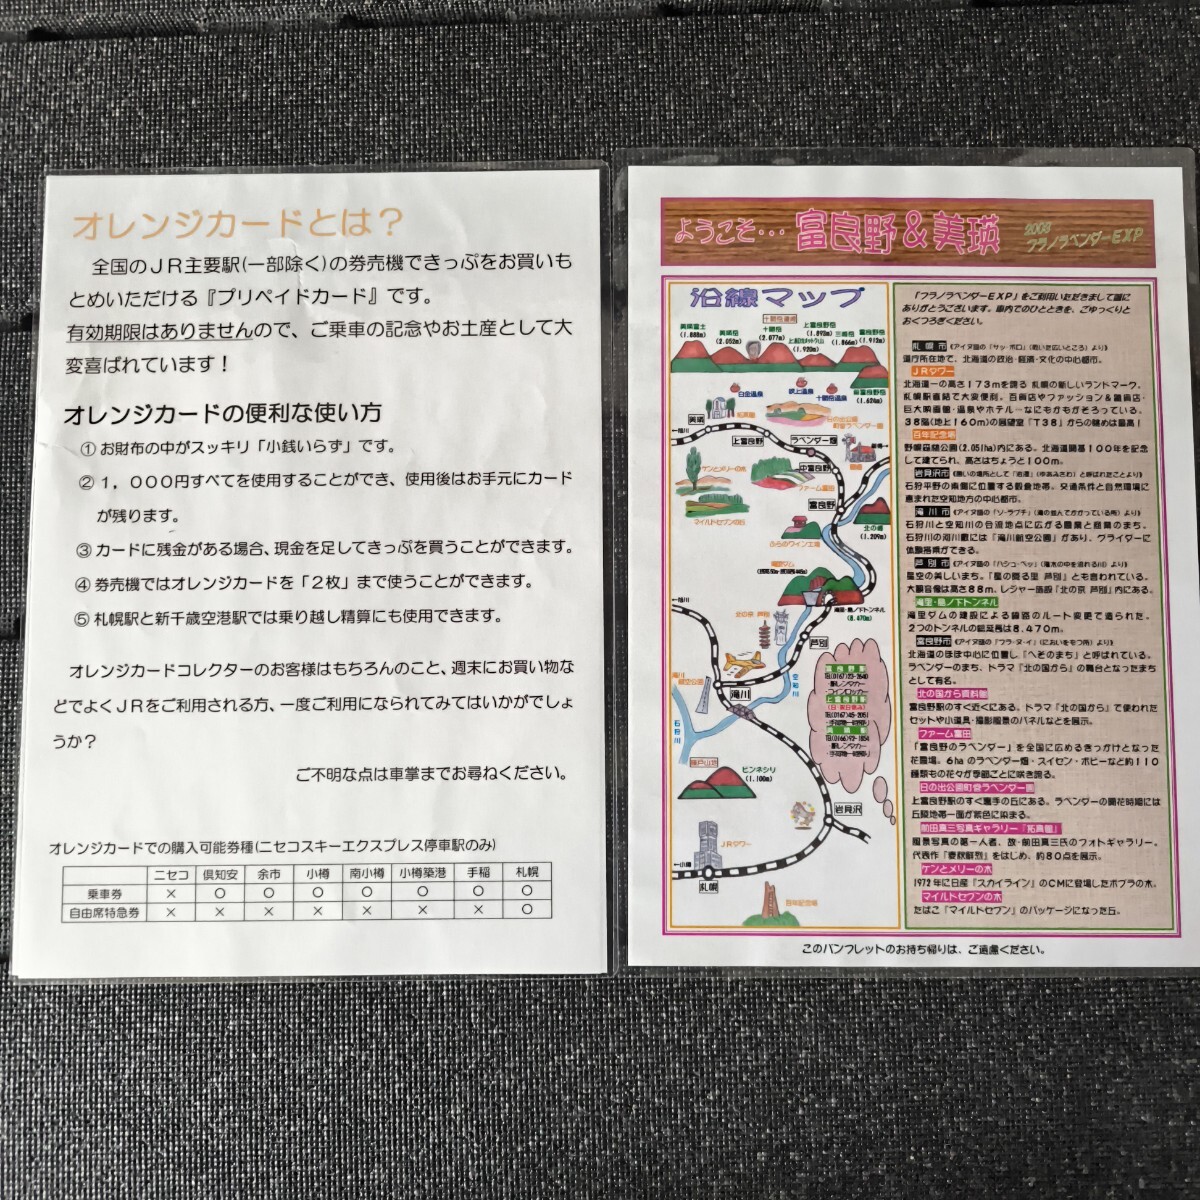 オレンジカードとは？
全国のＪＲ主要駅(一部除く)の券売機できっぷをお買いも
とめいただける『プリペイドカード』です。
有効期限はありませんので、ご乗車の記念やお土産として大
変喜ばれています！
オレンジカードの便利な使い方
① お財布の中がスッキリ「小銭いらず」です。
② １，０００円すべてを使用することができ、使用後はお手元にカード
が残ります。
③ カードに残金がある場合、現金を足してきっぷを買うことができます。
④ 券売機ではオレンジカードを「２枚」まで使うことができます。
⑤ 札幌駅と新千歳空港駅では乗り越し精算にも使用できます。
オレンジカードコレクターのお客様はもちろんのこと、週末にお買い物な
どでよくＪＲをご利用される方、一度ご利用になられてみてはいかがでしょ
うか？
ご不明な点は車掌までお尋ねください。
オレンジカードでの購入可能券種(ニセコスキーエクスプレス停車駅のみ)
ニセコ 倶知安 余市 小樽 南小樽 小樽築港 手稲 札幌
乗車券 × ○ ○ ○ ○ ○ ○ ○
自由席特急券 × × × × × × × ○
ようこそ… 富良野＆美瑛
フラノラベンダーEXP
沿線マップ
十勝岳連峰
美瑛富士
(1.888m)
美瑛岳
(2.052m)
十勝岳
(2.077m)
(1.920m)
上富良野岳
(1.893m)
三峰岳
(1.866m)
富良野岳
(1.912m)
白金温泉
吹上温泉
十勝岳温泉
美瑛
拓真館
上富良野
ラベンダー畑
ケンとメリーの木
中富良野
ファーム富田
マイルドセブンの丘
富良野
ふらのワイン工場
(1.209m)
滝里・島ノ下トンネル
(8.470m)
北の京 芦別
芦別
滝川
空知川
石狩川
富良野駅
TEL(0167)22-2640
上富良野駅
TEL(0167)45-2051
美瑛駅
ピンネシリ
(1.100m)
岩見沢
JRタワー
札幌
百年記念塔
「フラノラベンダーＥＸＰ」をご利用いただきまして誠に
ありがとうございます。車内でのひとときを、ごゆっくりと
おくつろぎください。
札幌市
道庁所在地で、北海道の政治・経済・文化の中心都市。
ＪＲタワー
北海道一の高さ１７３ｍを誇る 札幌の新しいランドマーク。
札幌駅直結で大変便利。百貨店やファッション＆雑貨店・
巨大映画館・温泉やホテル…なにもかもがそろっている。
３８階(地上１６０ｍ)の展望室『Ｔ３８』からの眺めは最高！
百年記念塔
野幌森林公園(2.051ha)内にある。北海道開基１００年を記念
して建てられ、高さはちょうど１００ｍ。
岩見沢市
石狩平野の東側に位置する穀倉地帯。交通条件と自然環境に
恵まれた空知地方の中心都市。
滝川市
石狩川と空知川の合流地点に広がる農業と商業のまち。
石狩川の河川敷には「滝川航空公園」があり、グライダーに
体験搭乗ができる。
芦別市
星空の美しいまち。「星の降る里 芦別」とも言われている。
大観音像は高さ８８ｍ。レジャー施設『北の京 芦別』内にある。
滝里・島ノ下トンネル
滝里ダムの建設による線路のルート変更で造られた。
２つのトンネルの総延長は８.４７０ｍ。
富良野市
北海道のほぼ中心に位置し「へそのまち」と呼ばれている。
ラベンダーのまち、ドラマ『北の国から』の舞台となったまち
として有名。
北の国から資料館
富良野駅のすぐ近くにある。ドラマ『北の国から』で使われた
セットや小道具・撮影風景のパネルなどを展示。
ファーム富田
「富良野のラベンダー」を全国に広めるきっかけとなった
花農場。６haのラベンダー畑・スイセン・ポピーなど約１１０
種類もの花々が季節ごとに咲き誇る。
日の出公園町営ラベンダー園
上富良野駅のすぐ裏手の丘にある。ラベンダーの開花時期には
丘陵地帯一面が紫色に染まる。
前田真三写真ギャラリー『拓真館』
風景写真の第一人者、故・前田真三氏のフォトギャラリー。
代表作「麦秋鮮烈」をはじめ、約８０点を展示。
ケンとメリーの木
1972年に日産『スカイライン』のＣＭに登場したポプラの木。
マイルドセブンの木
たばこ『マイルドセブン』のパッケージになった丘。
このパンフレットのお持ち帰りは、ご遠慮ください。